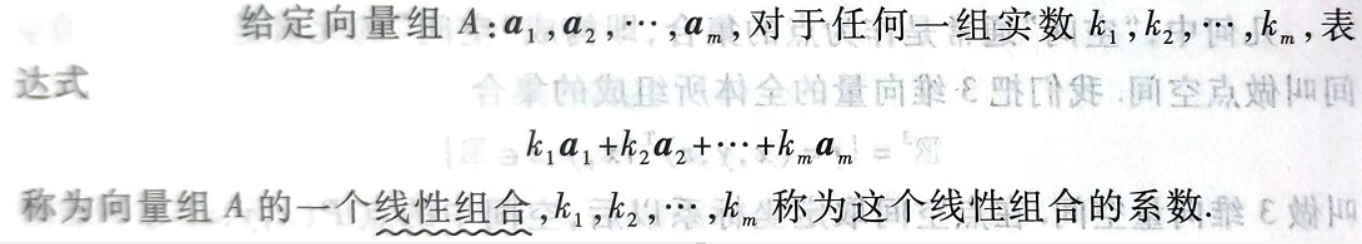 给定向量组 A:a₁,a₂,⋯,aₘ,对于任何一组实数 k₁,k₂,⋯,kₘ,表
达式
k₁a₁+k₂a₂+⋯+kₘaₘ
称为向量组 A 的一个线性组合,k₁,k₂,⋯,kₘ 称为这个线性组合的系数.